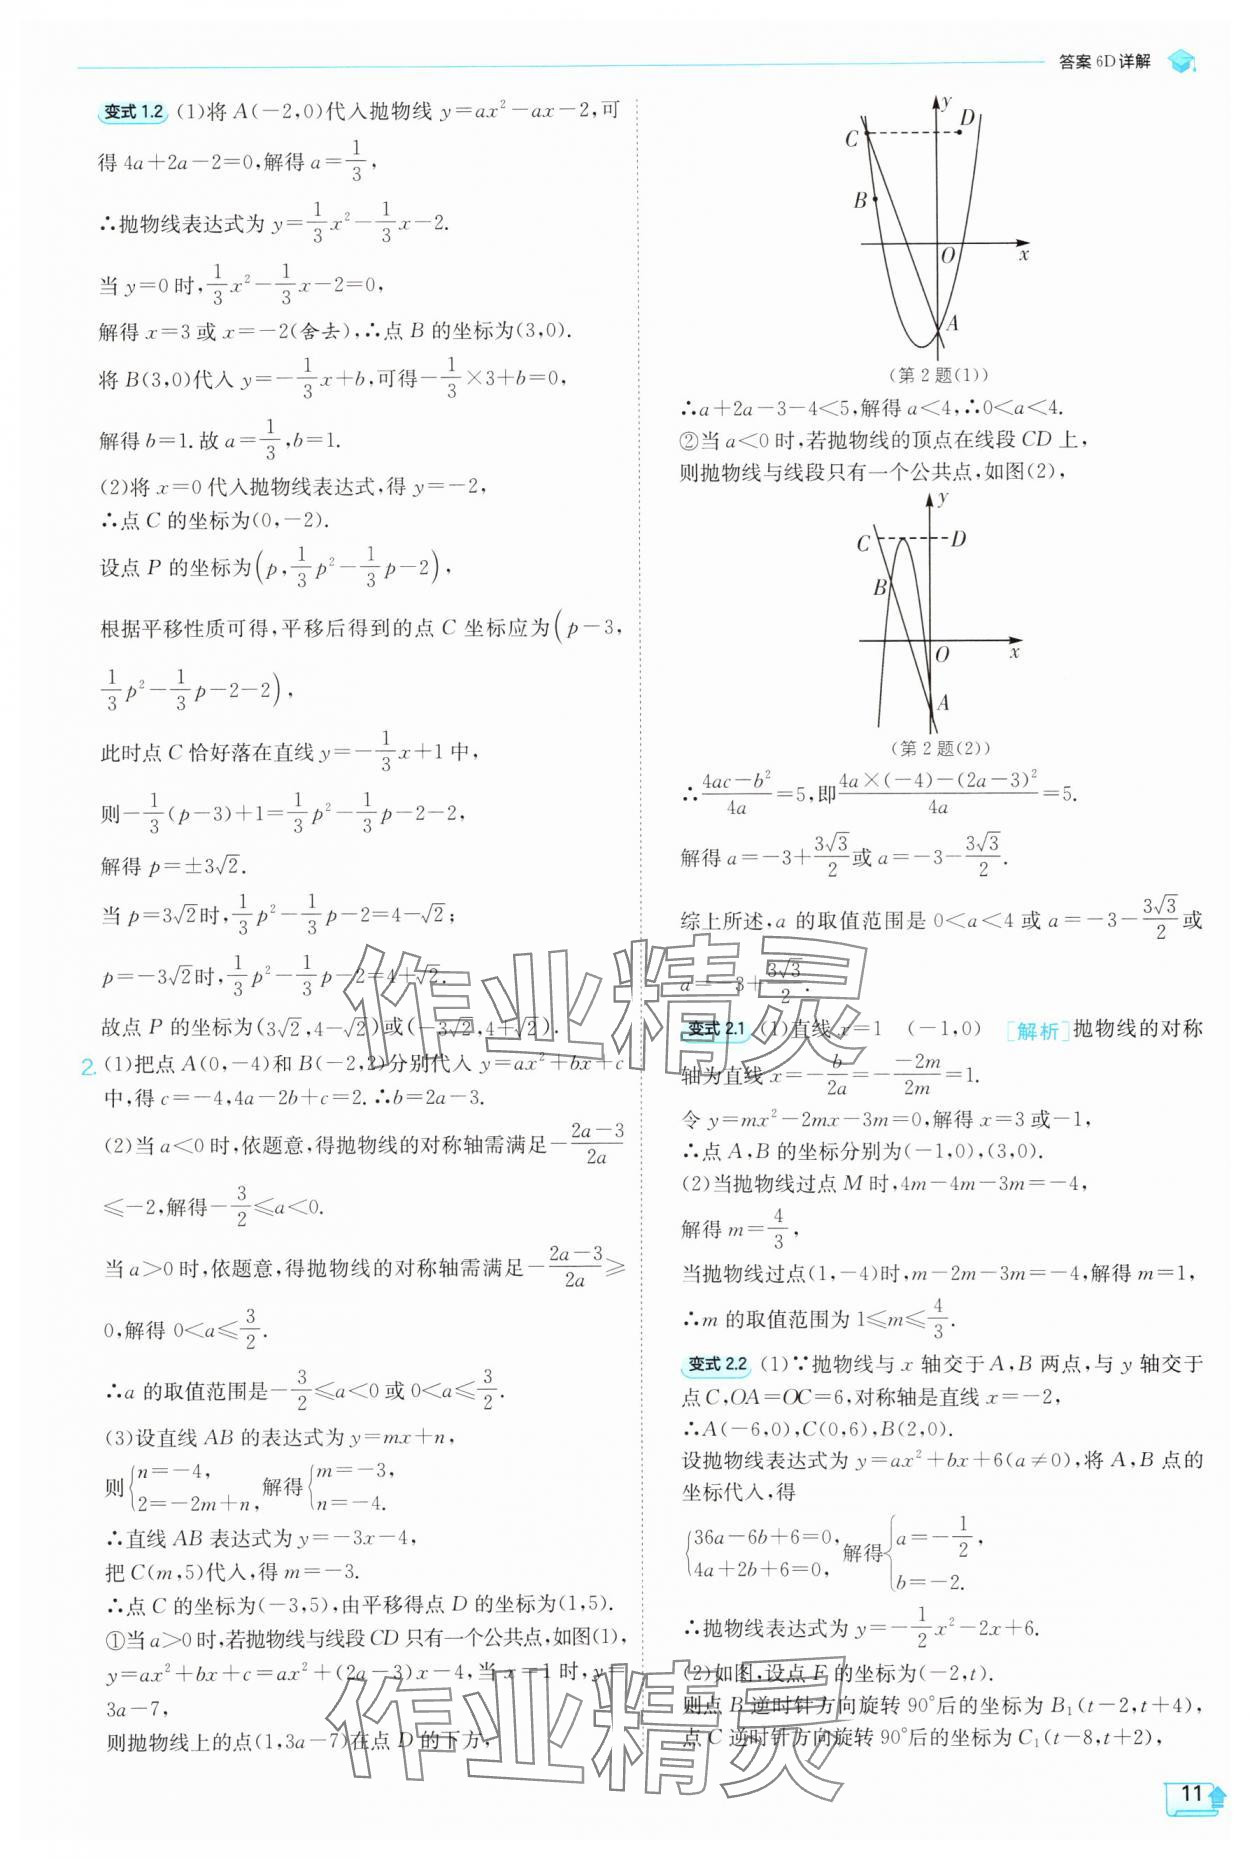 答案 6D 详解
变式1.2 (1)将 A(－2,0)代入抛物线 y=ax²－ax－2,可
得 4a＋2a－2=0,解得 a=1/3,
∴抛物线表达式为 y=1/3x²－1/3x－2.
当 y=0 时,1/3x²－1/3x－2=0,
解得 x=3 或 x=－2(舍去),∴点 B 的坐标为(3,0).
将 B(3,0)代入 y=－1/3x＋b,可得－1/3×3＋b=0,
解得 b=1.故 a=1/3,b=1.
(2)将 x=0 代入抛物线表达式,得 y=－2,
∴点 C 的坐标为(0,－2).
设点 P 的坐标为(p,1/3p²－1/3p－2),
根据平移性质可得,平移后得到的点 C 坐标应为(p－3,
1/3p²－1/3p－2－2),
此时点 C 恰好落在直线 y=－1/3x＋1 中,
则－1/3(p－3)＋1=1/3p²－1/3p－2－2,
解得 p=±3√2.
当 p=3√2时,1/3p²－1/3p－2=4－√2;
p=－3√2时,1/3p²－1/3p－2=4＋√2.
故点 P 的坐标为(3√2,4－√2)或(－3√2,4＋√2).
2. (1)把点 A(0,－4)和 B(－2,2)分别代入 y=ax²＋bx＋c
中,得 c=－4,4a－2b＋c=2.∴b=2a－3.
(2)当 a<0 时,依题意,得抛物线的对称轴需满足－(2a－3)/2a
≤－2,解得－3/2≤a<0.
当 a>0 时,依题意,得抛物线的对称轴需满足－(2a－3)/2a≥
0,解得 0<a≤3/2.
∴a 的取值范围是－3/2≤a<0 或 0<a≤3/2.
(3)设直线 AB 的表达式为 y=mx＋n,
则{n=－4, 2=－2m＋n, 解得{m=－3, n=－4.
∴直线 AB 表达式为 y=－3x－4,
把 C(m,5)代入,得 m=－3.
∴点 C 的坐标为(－3,5),由平移得点 D 的坐标为(1,5).
①当 a>0 时,若抛物线与线段 CD 只有一个公共点,如图(1),
y=ax²＋bx＋c=ax²＋(2a－3)x－4,当 x=1 时,y=
3a－7,
则抛物线上的点(1,3a－7)在点 D 的下方,
y
C
D
B
O
x
A
(第 2 题(1))
∴a＋2a－3－4<5,解得 a<4,∴0<a<4.
②当 a<0 时,若抛物线的顶点在线段 CD 上,
则抛物线与线段只有一个公共点,如图(2),
y
C
D
B
O
x
A
(第 2 题(2))
∴(4ac－b²)/4a=5,即(4a×(－4)－(2a－3)²)/4a=5.
解得 a=－3＋3√3/2或 a=－3－3√3/2.
综上所述,a 的取值范围是 0<a<4 或 a=－3－3√3/2或
a=－3＋3√3/2.
变式2.1 (1)直线 x=1 (－1,0) [解析]抛物线的对称
轴为直线 x=－b/2a=－(－2m)/2m=1.
令 y=mx²－2mx－3m=0,解得 x=3 或－1,
∴点 A,B 的坐标分别为(－1,0),(3,0).
(2)当抛物线过点 M 时,4m－4m－3m=－4,
解得 m=4/3,
当抛物线过点(1,－4)时,m－2m－3m=－4,解得 m=1,
∴m 的取值范围为 1≤m≤4/3.
变式2.2 (1)∵抛物线与 x 轴交于 A,B 两点,与 y 轴交于
点 C,OA=OC=6,对称轴是直线 x=－2,
∴A(－6,0),C(0,6),B(2,0).
设抛物线表达式为 y=ax²＋bx＋6(a≠0),将 A,B 点的
坐标代入,得
{36a－6b＋6=0, 4a＋2b＋6=0, 解得{a=－1/2, b=－2.
∴抛物线表达式为 y=－1/2x²－2x＋6.
(2)如图,设点 E 的坐标为(－2,t).
则点 B 逆时针方向旋转 90°后的坐标为 B₁(t－2,t＋4),
点 C 逆时针方向旋转 90°后的坐标为 C₁(t－8,t＋2),
作业精灵
作业精灵
11